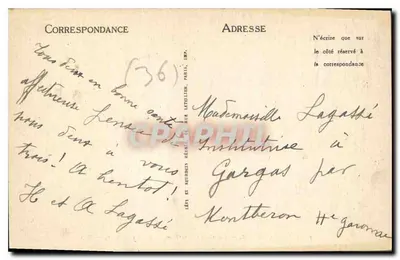 CORRESPONDANCE
ADRESSE
N'écrire que sur
le côté réservé à
la correspondance
(36)
Tous deux en bonne santé
affectueuse
nous deux a vous
trois! A bientot!
H et A Lagassé
Mademoiselle Lagassé
Institutrice à
Gargas par
Montberon Hte garonne
CPAPHIL